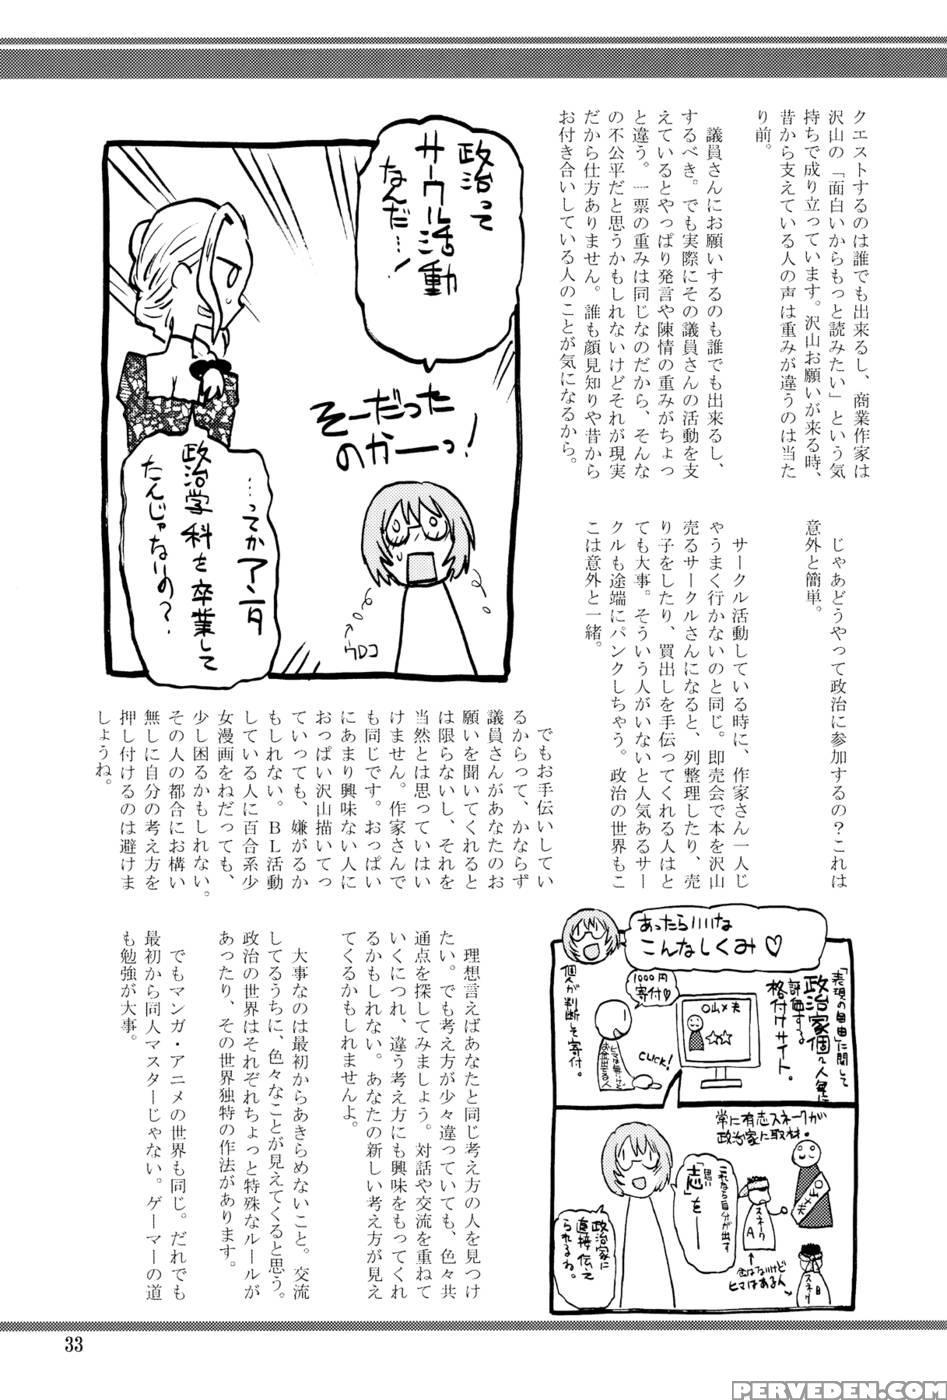 クエストするのは誰でも出来るし、商業作家は
沢山の「面白いからもっと読みたい」という気
持ちで成り立っています。沢山お願いが来る時、
昔から支えている人の声は重みが違うのは当た
り前。
議員さんにお願いするのも誰でも出来るし、
するべき。でも実際にその議員さんの活動を支
えているとやっぱり発言や陳情の重みがちょっ
と違う。一票の重みは同じなのだから、そんな
の不公平だと思うかもしれないけどそれが現実
だから仕方ありません。誰も顔見知りや昔から
お付き合いしている人のことが気になるから。
政治って
サークル活動
なんだ…!
そーだった
のかーーっ!
…ってかアンタ
政治学科を卒業して
たんじゃないの?
ウロコ
じゃあどうやって政治に参加するの?これは
意外と簡単。
サークル活動している時に、作家さん一人じ
ゃうまく行かないのと同じ。即売会で本を沢山
売るサークルさんになると、列整理したり、売
り子をしたり、買出しを手伝ってくれる人はと
ても大事。そういう人がいないと人気あるサー
クルも途端にパンクしちゃう。政治の世界もこ
こは意外と一緒。
でもお手伝いしてい
るからって、かならず
議員さんがあなたのお
願いを聞いてくれると
は限らないし、それを
当然とは思っていはい
けません。作家さんで
も同じです。おっぱい
にあまり興味ない人に
おっぱい沢山描いてっ
ていっても、嫌がるか
もしれない。BL活動
している人に百合系少
女漫画をねだっても、
少し困るかもしれない。
その人の都合にお構い
無しに自分の考え方を
押し付けるのは避けま
しょうね。
あったらいいな
こんなしくみ♡
「表現の自由」に関して
政治家個々人毎に
評価する
格付けサイト。
〇山×夫
☆☆
1000円
寄付♡
CLICK!
個人が判断し寄付。
常に有志スネークが
政治家に取材。
〇山×夫
スネークA
スネークB
金はないけど
ヒマはあるん
これなら自分が出す
「志」を――
政治家に
直接伝えて
られるね。
理想言えばあなたと同じ考え方の人を見つけ
たい。でも考え方が少々違っていても、色々共
通点を探してみましょう。対話や交流を重ねて
いくにつれ、違う考え方にも興味をもってくれ
るかもしれない。あなたの新しい考え方が見え
てくるかもしれませんよ。
大事なのは最初からあきらめないこと。交流
してるうちに、色々なことが見えてくると思う。
政治の世界はそれぞれちょっと特殊なルールが
あったり、その世界独特の作法があります。
でもマンガ・アニメの世界も同じ。だれでも
最初から同人マスターじゃない。ゲーマーの道
も勉強が大事。
33
PERVEDEN.COM